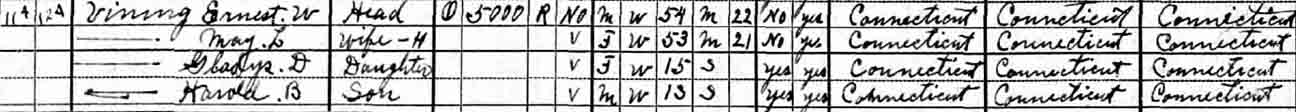 114 124 Vining Ernest. W Head O 5000 R No M W 54 M 22 No yes Connecticut Connecticut Connecticut
May. L Wife-H V F W 53 M 21 No yes Connecticut Connecticut Connecticut
Gladys. D Daughter V F W 15 S yes yes Connecticut Connecticut Connecticut
Harold. B Son V M W 13 S yes yes Connecticut Connecticut Connecticut